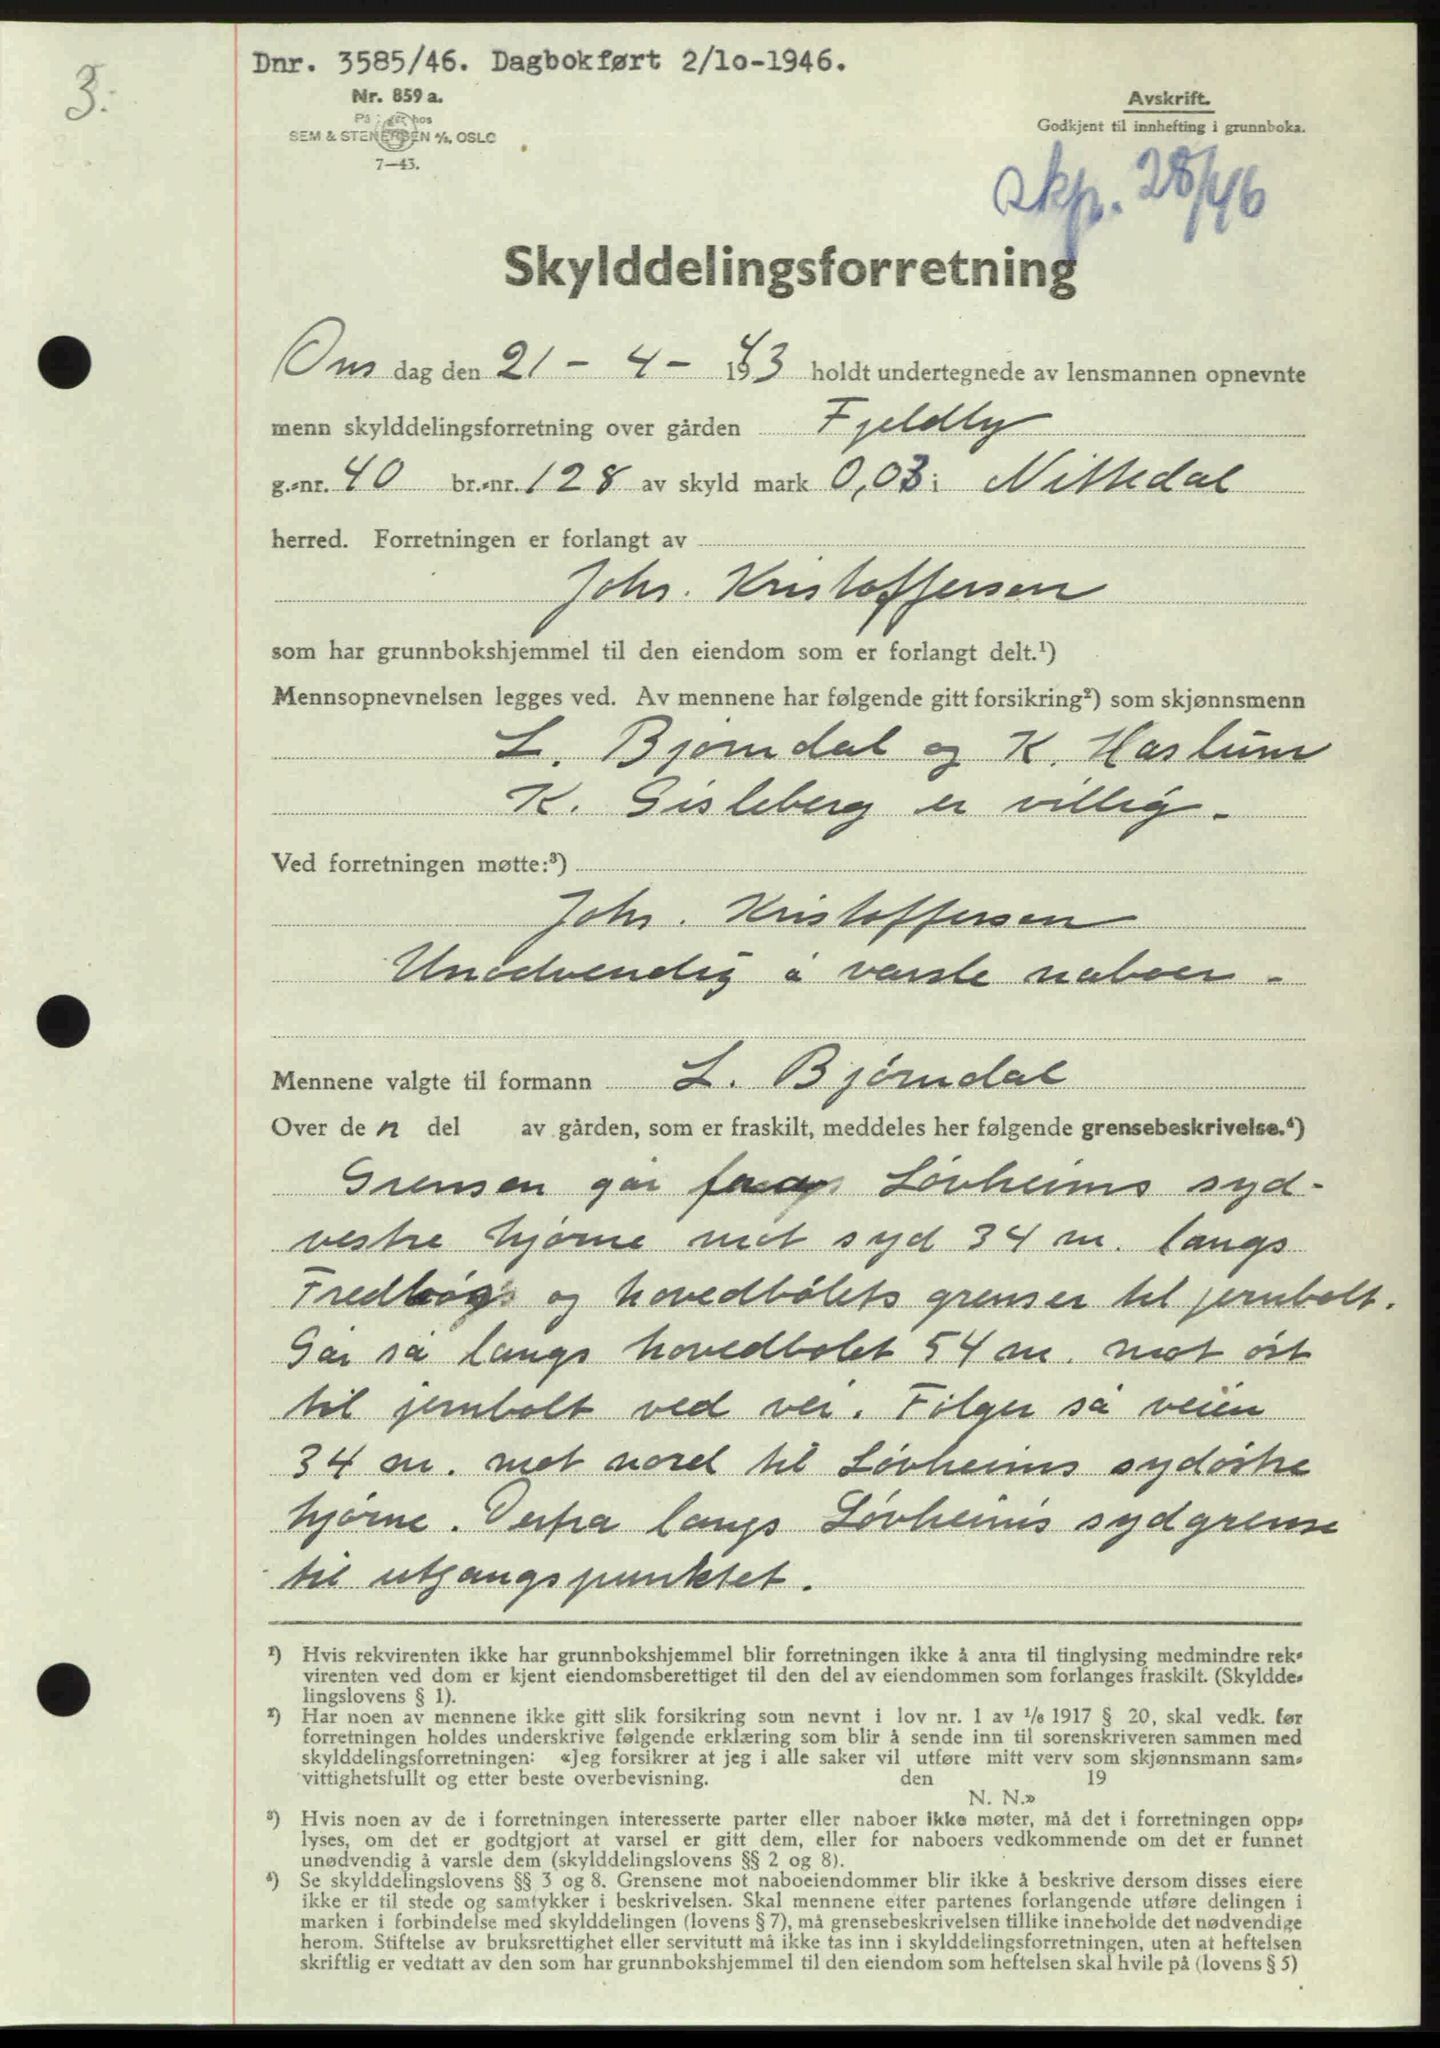 3.
Dnr. 3585/46. Dagbokført 2/10-1946.
Nr. 859 a.
SEM & STENERSEN A/S, OSLO
7—43.
Avskrift.
Godkjent til innhefting i grunnboka.
skp. 28/46
Skylddelingsforretning
Ons dag den 21 - 4 - 1943 holdt undertegnede av lensmannen opnevnte
menn skylddelingsforretning over gården Fjeldly
g.-nr. 40 br.-nr. 128 av skyld mark 0,03 i Nittedal
herred. Forretningen er forlangt av
Johs. Kristoffersen
som har grunnbokshjemmel til den eiendom som er forlangt delt.¹)
Mennsopnevnelsen legges ved. Av mennene har følgende gitt forsikring²) som skjønnsmenn
L. Bjørndal og K. Haslum
K. Gisleberg er villig.
Ved forretningen møtte:³)
Johs. Kristoffersen
Unødvendig å varsle naboer.
Mennene valgte til formann L. Bjørndal
Over de n del av gården, som er fraskilt, meddeles her følgende grensebeskrivelse.⁴)
Grensen går Løvheims syd-
vestre hjørne mot syd 34 m. langs
og hovedbølets grenser til jernbolt.
Går så langs hovedbølet 54 m. mot øst
til jernbolt ved vei. Følger så veien
34 m. mot nord til Løvheims sydøstre
hjørne. Derfra langs Løvheims sydgrense
til utgangspunktet.
¹) Hvis rekvirenten ikke har grunnbokshjemmel blir forretningen ikke å anta til tinglysing medmindre rek-
virenten ved dom er kjent eiendomsberettiget til den del av eiendommen som forlanges fraskilt. (Skyldde-
lingslovens § 1).
²) Har noen av mennene ikke gitt slik forsikring som nevnt i lov nr. 1 av 1/6 1917 § 20, skal vedk. før
forretningen holdes underskrive følgende erklæring som blir å sende inn til sorenskriveren sammen med
skylddelingsforretningen: «Jeg forsikrer at jeg i alle saker vil utføre mitt verv som skjønnsmann sam-
vittighetsfullt og etter beste overbevisning. den 19
N. N.»
³) Hvis noen av de i forretningen interesserte parter eller naboer ikke møter, må det i forretningen opp-
lyses, om det er godtgjort at varsel er gitt dem, eller for naboers vedkommende om det er funnet
unødvendig å varsle dem (skylddelingslovens §§ 2 og 8).
⁴) Se skylddelingslovens §§ 3 og 8. Grensene mot naboeiendommer blir ikke å beskrive dersom disses eiere
ikke er til stede og samtykker i beskrivelsen. Skal mennene etter partenes forlangende utføre delingen i
marken i forbindelse med skylddelingen (lovens § 7), må grensebeskrivelsen tillike inneholde det nødvendige
herom. Stiftelse av bruksrettighet eller servitutt må ikke tas inn i skylddelingsforretningen, uten at heftelsen
skriftlig er vedtatt av den som har grunnbokshjemmel til den eiendom som heftelsen skal hvile på (lovens § 5)